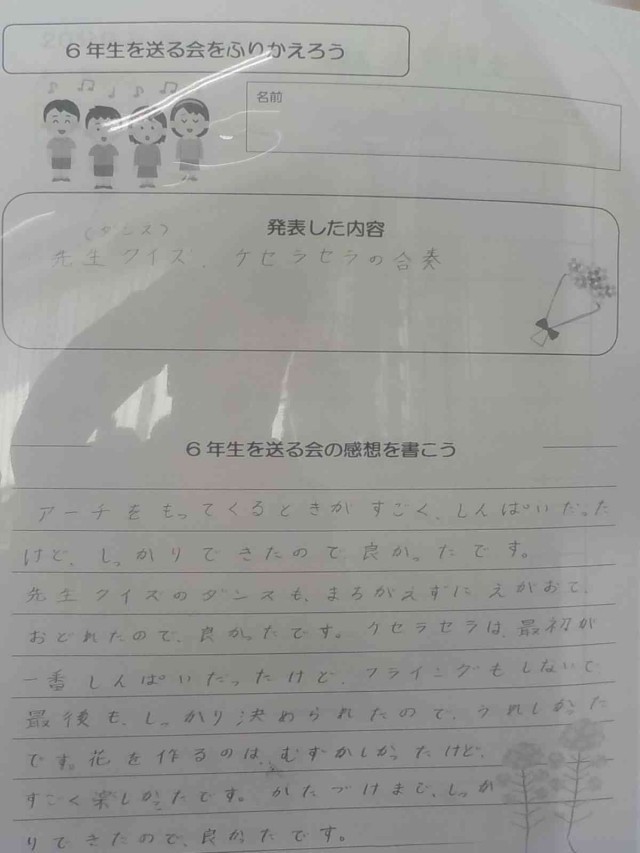 6年生を送る会をふりかえろう
名前
発表した内容
(ダンス)
先生クイズ、ケセラセラの合奏
6年生を送る会の感想を書こう
アーチをもってくるときがすごく、しんぱいだった
けど、しっかりできたので良かったです。
先生クイズのダンスも、まちがえずにえがおで、
おどれたので、良かったです。ケセラセラは、最初が
一番しんぱいだったけど、フライングもしないで
最後も、しっかり決められたので、うれしかった
です。花を作るのは、むずかしかったけど、
すごく楽しかったです。かたづけまで、しっか
りできたので、良かったです。